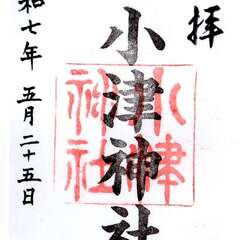 拝
小津神社
和七年 五月二十五日
小津
神社